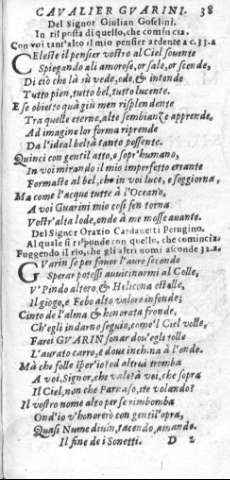 CAVALIER GVARINI. 38
Del Signor Giulian Goselini.
In risposta di quello, che comincia.
Con voi tant'alto il mio pensier ardente a c. 33.2
CEleste il pensier vostro al Ciel sovente
Spiegando ali amorose, or sale, or scende,
Di ciò che là sù vede, ode, & intende
Tutto pien, tutto bel, tutto lucente.
E se obietto quà giù men risplendente
Tra quelle eterne, alte sembianze apprende,
Ad imagine lor forma riprende
Da l'ideal beltà tanto possente.
Quinci con gentil atto, e sopr'humano,
In voi mirando il mio imperfetto errante
Formaste al bel, che in voi luce, e soggiorna,
Ma come l'acque tutte à l'Oceano,
A voi Guarini mio così sen torna
Vostr'alta lode, ond'à me mosse avante.
Del Signor Orazio Cardanetti Perugino,
Al quale si risponde con quello, che comincia:
Fuggendo il rio, che gli altri nomi asconde 32.2.
GVarin se per favor l'aure seconde
Sperar potessi avvicinarmi al Colle,
V'Pindo altero, & Helicona estolle,
Il giogo, e Febo alto valore infonde;
Cinto de l'alma & honorata fronde,
Ch'egli indarno seguio, come'l Ciel volle,
Farei GVARIN sonar dov'egli tolle
L'aurato carro, e dove inchina à l'onde.
Ma che folle sper'io! ed altrui tromba
A voi, Signor, che valetà vei, che sopra
Il Ciel, non che Parnaso, ite volando?
Il vostro nome alto per se rimbomba
Ond'io v'honorerò con gentil'opra,
Quasi Nume divin, tacendo, amando.
Il fine de i Sonetti. D 2